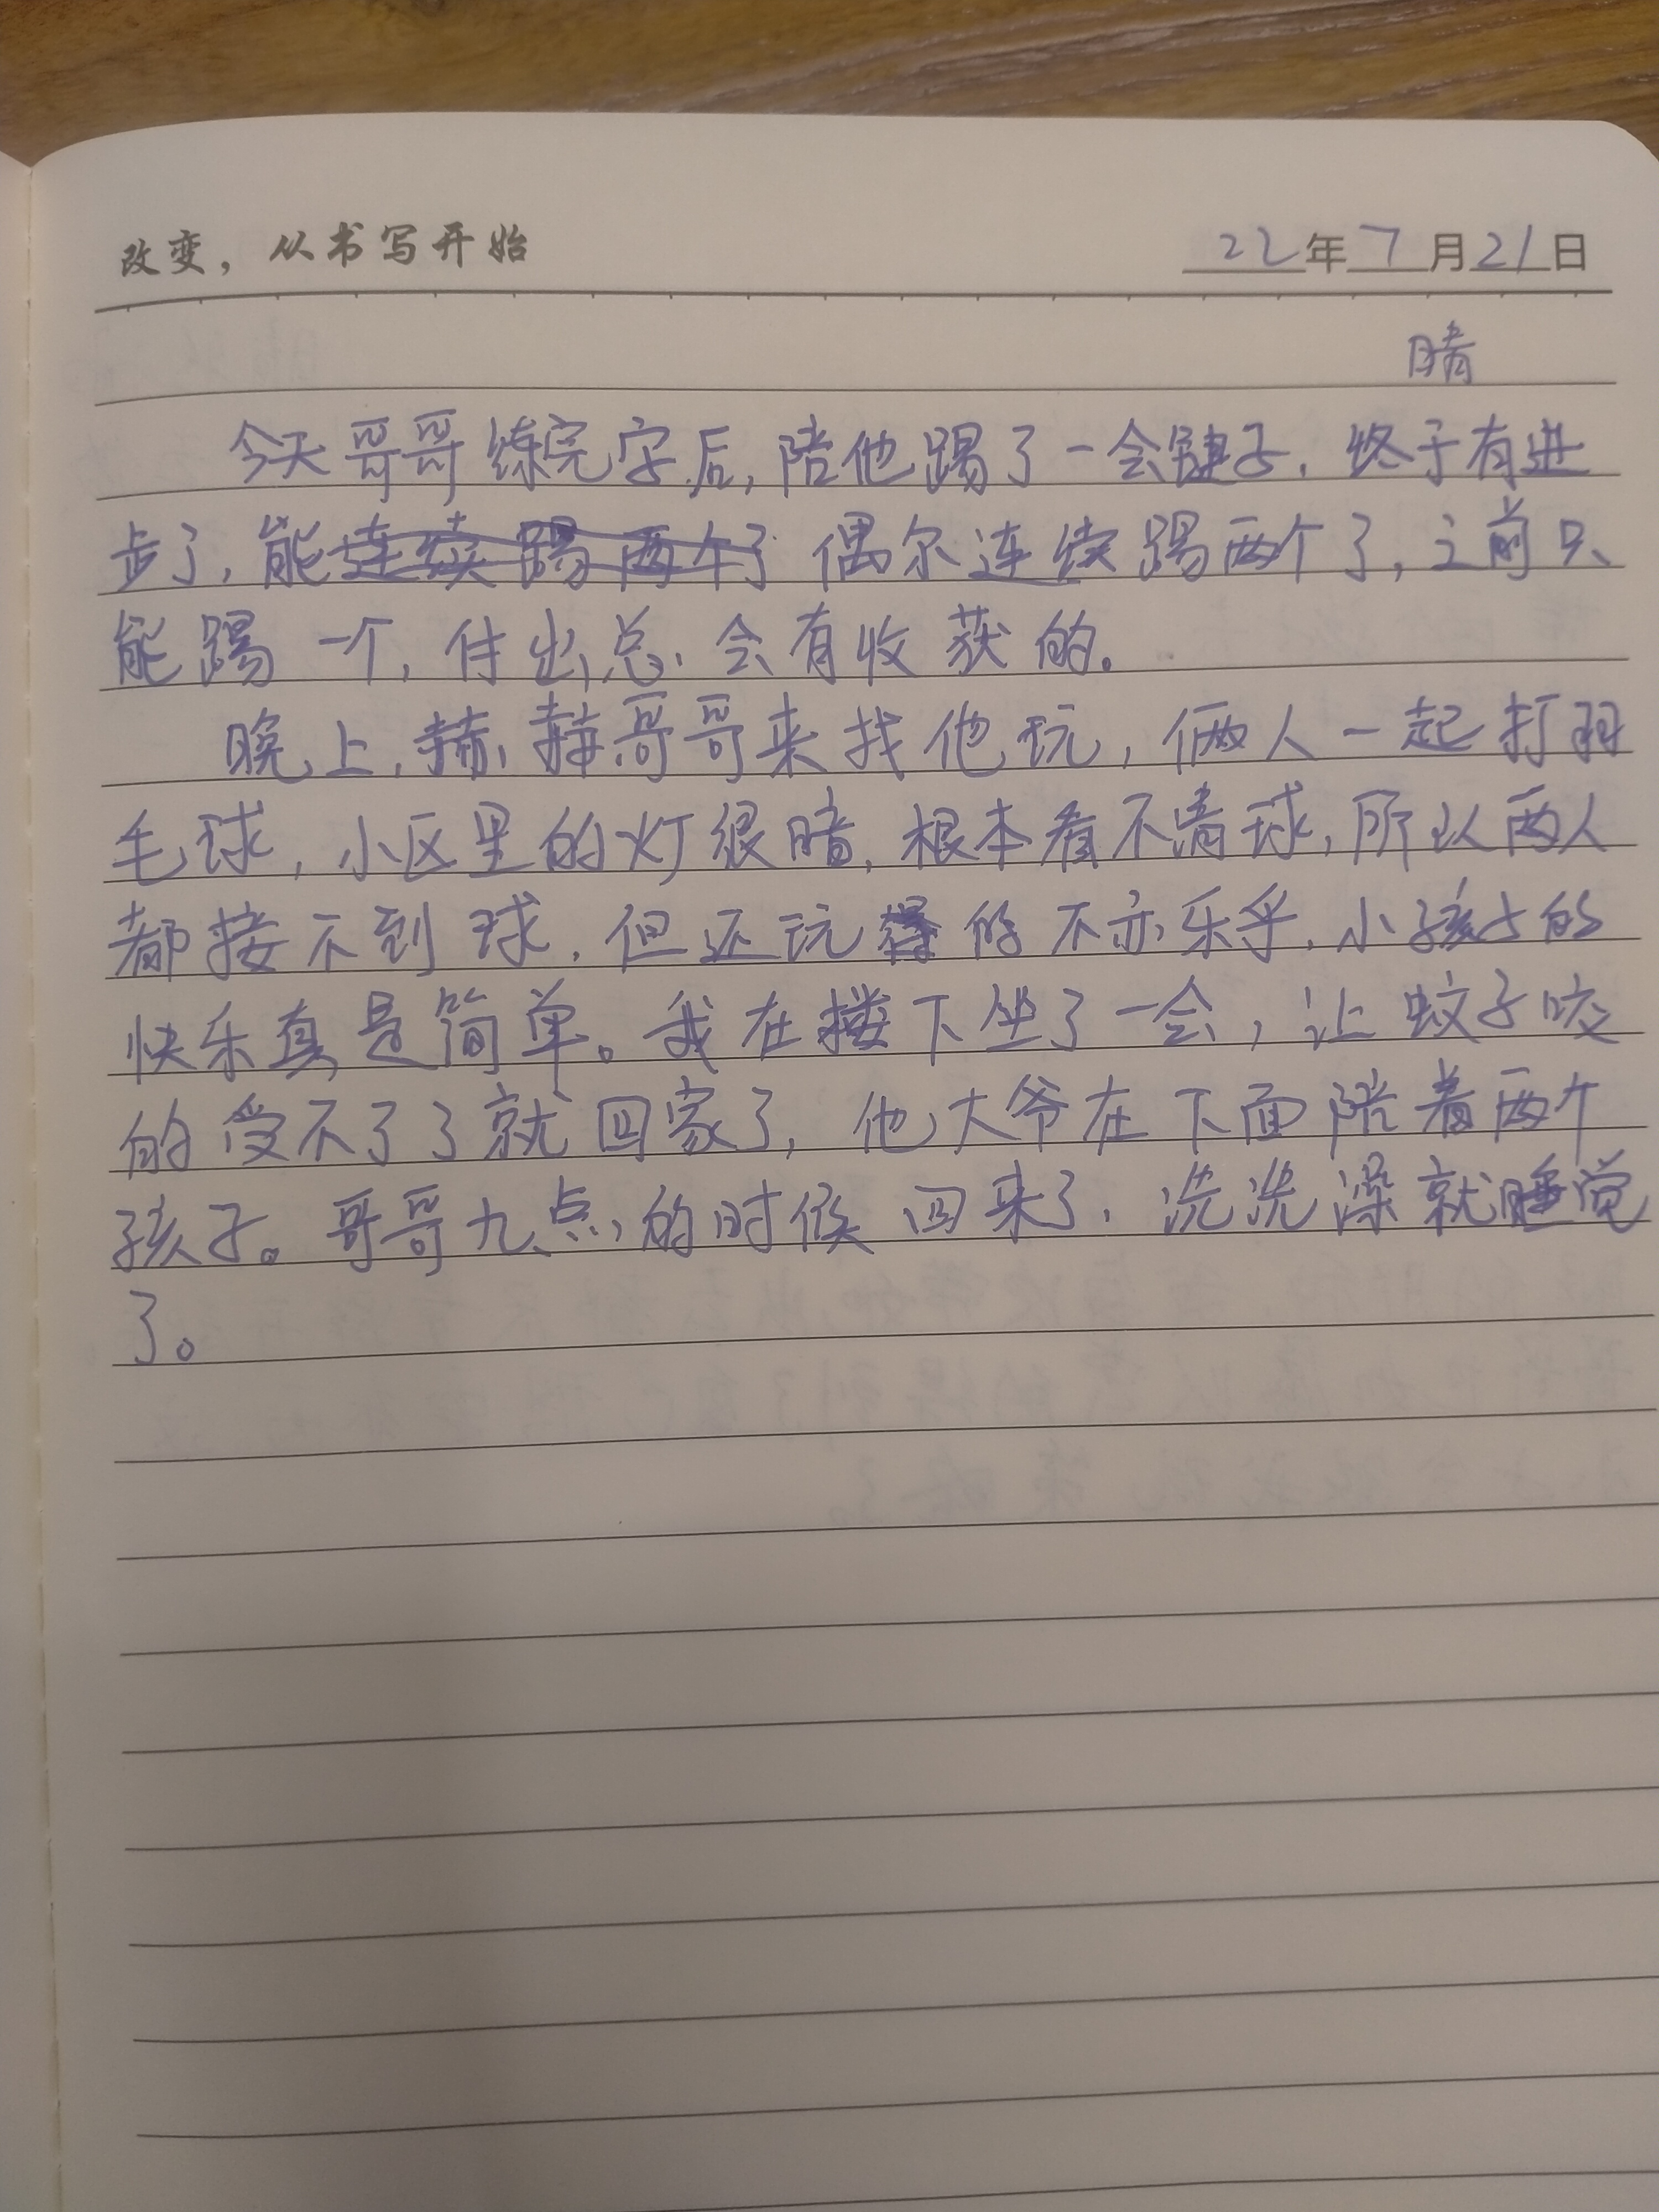 改变，从书写开始 22年7月21日
晴
今天哥哥练完字后，陪他踢了一会毽子，终于有进
步了，能连续踢两个了偶尔连续踢两个了，之前只
能踢一个，付出总会有收获的。
晚上，赫赫哥哥来找他玩，俩人一起打羽
毛球，小区里的灯很暗，根本看不清球，所以两人
都接不到球，但还玩的不亦乐乎，小孩子的
快乐真是简单。我在楼下坐了一会，让蚊子咬
的受不了了就回家了，他大爷在下面陪着两个
孩子。哥哥九点的时候回来了，洗洗澡就睡觉
了。